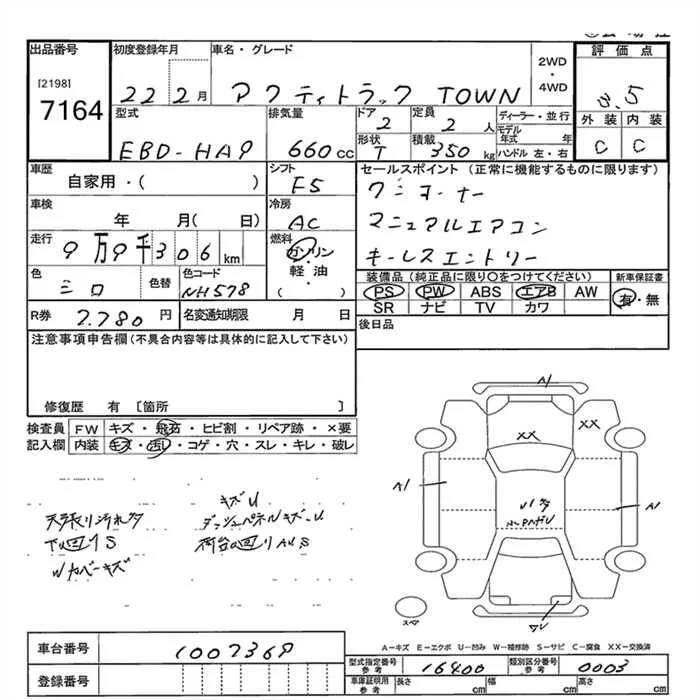 出品番号 初度登録年月 車名・グレード 2WD・4WD 評価点
[2198]
7164
22 2月 アクティトラック TOWN 3.5
型式 排気量 ドア 定員 ディーラー・並行 外装 内装
EBD-HA9 660cc 2 2人 モデル年式 年 C C
形状 T 積載 350kg ハンドル 左・右
車歴 シフト セールスポイント(正常に機能するものに限ります)
自家用・( ) F5 ワンオーナー
車検 冷房 マニュアルエアコン
年 月( 日) AC キーレスエントリー
走行 9万9千306km 燃料 ガソリン・軽油・( )
色 シロ 色替 色コード NH578
装備品(純正品に限り○をつけてください) 新車保証書
PS PW ABS エアB AW 有・無
SR ナビ TV カワ
R券 7.780円 名変通知期限 月 日 後日品
注意事項申告欄(不具合内容等は具体的に記入して下さい)
修復歴 有 [箇所 ]
検査員記入欄 FW キズ・飛石・ヒビ割・リペア跡・×要
内装 キズ・汚れ・コゲ・穴・スレ・キレ・破レ
天張り汚れ
キズU
ダッシュパネルキズ
下回りS
荷台回りAUS
Wカバーキズ
A1
XX XX
A1 A1
スペア
A-キズ E-エクボ U-凹み W-補修跡 S-サビ C-腐食 XX-交換済
車台番号 1007369
登録番号
型式指定番号参考 16400 類別区分番号参考 0003
車庫証明用参考 長さ cm 幅 cm 高さ cm